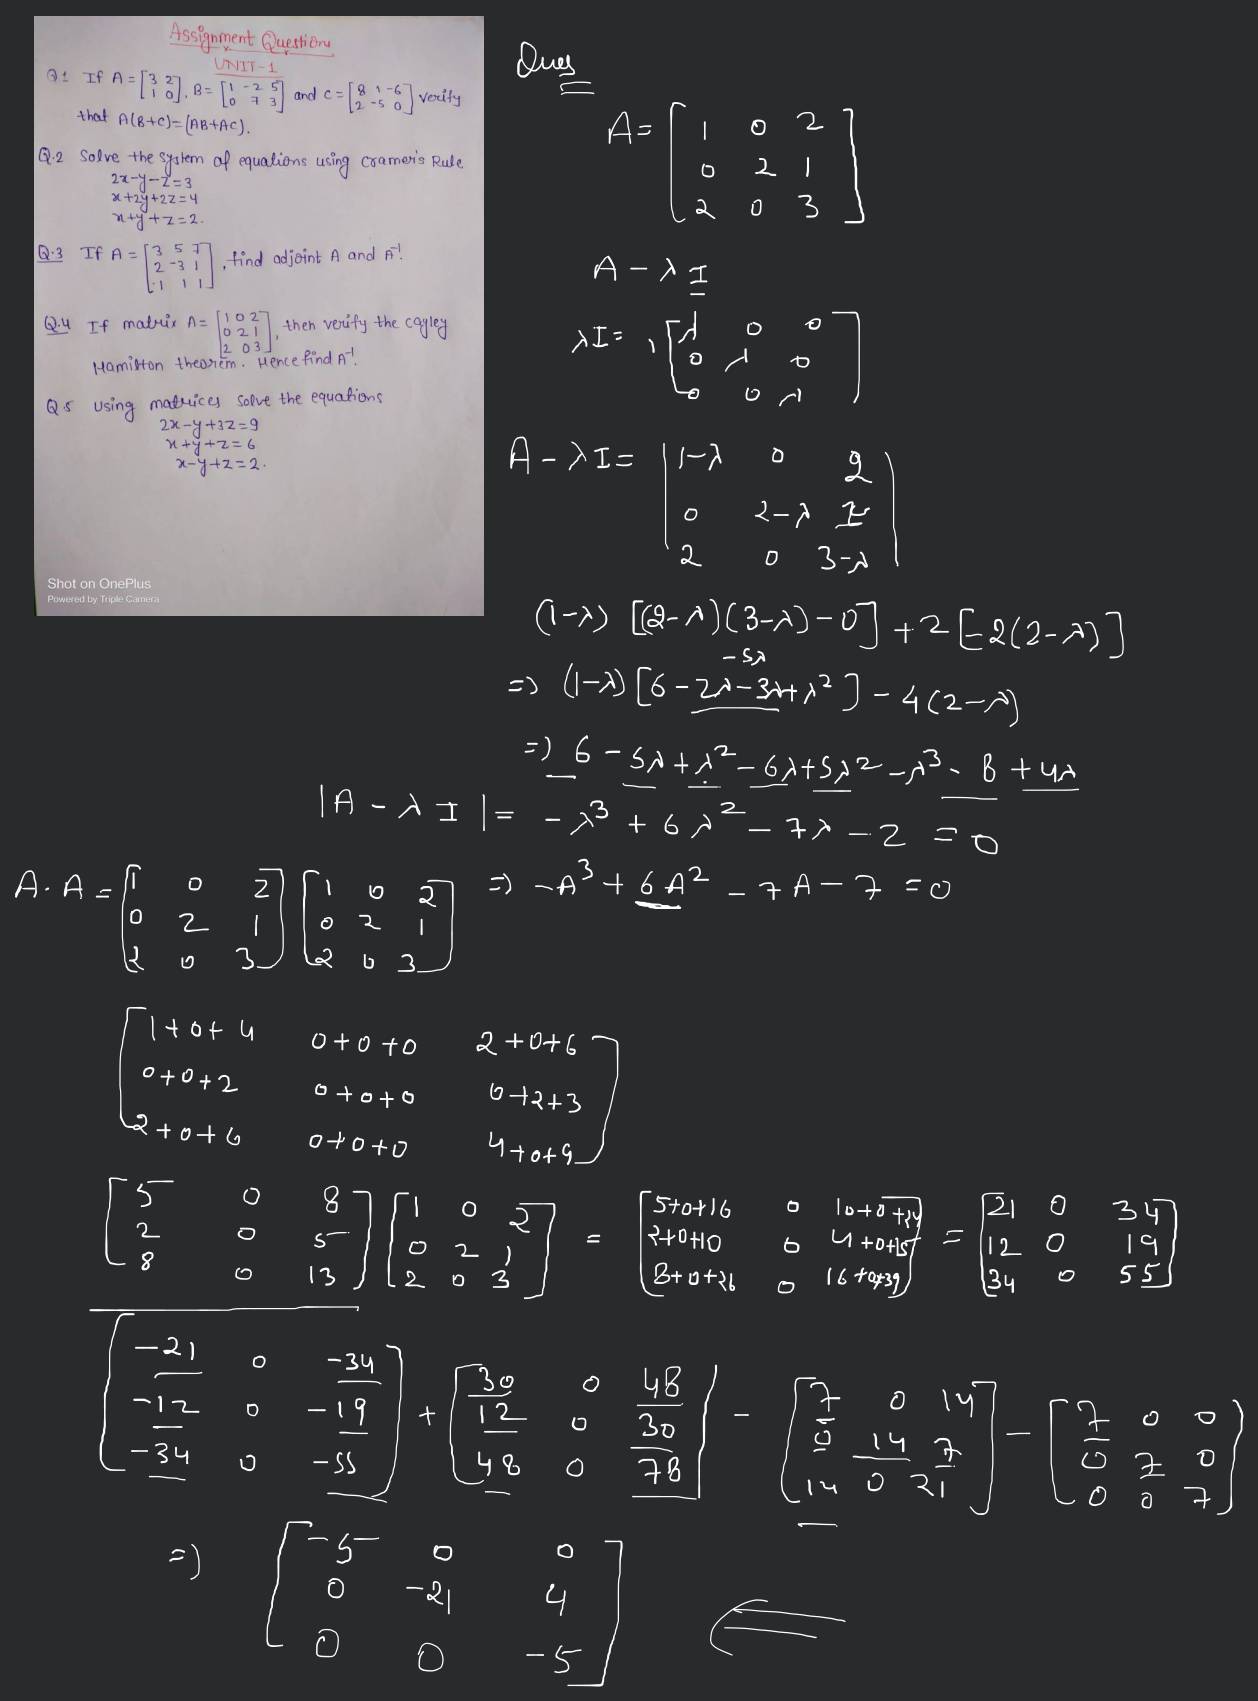 Assignment Questions
UNIT-1
Q1 If A = [3 2 1 0], B = [1 -2 5 0 7 3] and C = [8 1 -6 2 -5 0] verify
that A(B+C) = (AB+AC).
Q.2 Solve the system of equations using cramer's Rule
2x-y-z=3
x+2y+2z=4
x+y+z=2.
Q.3 If A = [3 5 7 2 -3 1 1 1 1], find adjoint A and A⁻¹.
Q.4 If matrix A = [1 0 2 0 2 1 2 0 3], then verify the cayley
Hamilton theorem. Hence find A⁻¹.
Q.5 Using matrices solve the equations
2x-y+3z=9
x+y+z=6
x-y+z=2.
Shot on OnePlus
Powered by Triple Camera
Ques
A = [1 0 2
0 2 1
2 0 3]
A - λI
λI = [λ 0 0
0 λ 0
0 0 λ]
A - λI = |1-λ 0 2
0 2-λ 1
2 0 3-λ|
(1-λ) [(2-λ)(3-λ)-0] + 2[-2(2-λ)]
-5λ
=> (1-λ) [6-2λ-3λ+λ²] - 4(2-λ)
=> 6-5λ+λ²-6λ+5λ²-λ³-8+4λ
|A - λI| = -λ³+6λ²-7λ-2=0
=> -A³+6A²-7A-7=0
A·A = [1 0 2 [1 0 2
0 2 1 0 2 1
2 0 3] 2 0 3]
[1+0+4 0+0+0 2+0+6
0+0+2 0+0+0 0+2+3
2+0+6 0+0+0 4+0+9]
[5 0 8 [1 0 2 = [5+0+16 0 10+0+24 = [21 0 34
2 0 5 0 2 1 2+0+10 0 4+0+15 12 0 19
8 0 13] 2 0 3] 8+0+26 0 16+0+39] 34 0 55]
[-21 0 -34 + [30 0 48 - [7 0 14 - [7 0 0
-12 0 -19 12 0 30 0 14 7 0 7 0
-34 0 -55] 48 0 78] 14 0 21] 0 0 7]
=> [-5 0 0
0 -21 4
0 0 -5]